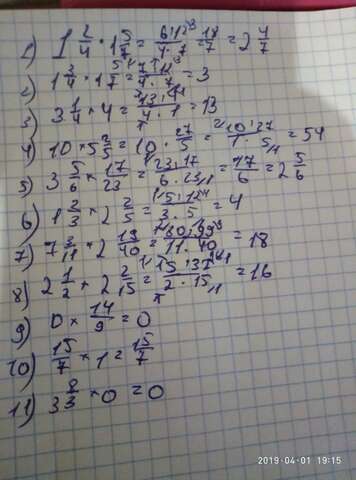 1) 1 2/4 · 1 5/7 = 6·12/4·7 = 18/7 = 2 4/7
2) 1 3/4 × 1 5/7 = 7·12/4·7 = 3
3) 3 1/4 × 4 = 13·4/4·1 = 13
4) 10 × 5 2/5 = 10 · 27/5 = 10·27/1·5 = 54
5) 3 5/6 × 17/23 = 23·17/6·23 = 17/6 = 2 5/6
6) 1 2/3 × 2 2/5 = 5·12/3·5 = 4
7) 7 3/11 × 2 19/40 = 80·99/11·40 = 18
8) 2 1/2 × 2 2/15 = 15·32/2·15 = 16
9) 0 × 14/9 = 0
10) 15/7 × 1 = 15/7
11) 3 8/3 × 0 = 0
2019-04-01 19:15